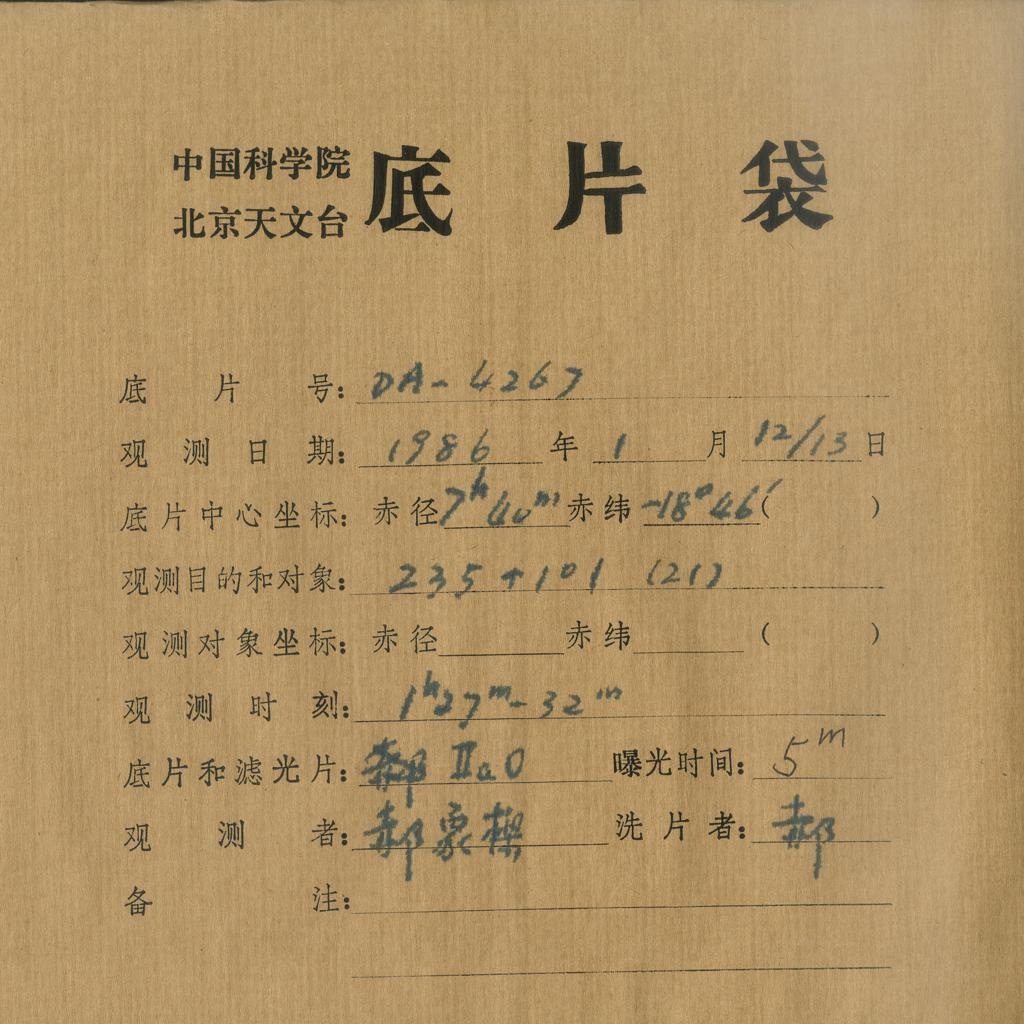 中国科学院
北京天文台
底片袋
底片号: DA-4267
观测日期: 1986 年 1 月 12/13 日
底片中心坐标: 赤径 7h 40m 赤纬 -18°46′ ( )
观测目的和对象: 235+101 (21)
观测对象坐标: 赤径 赤纬 ( )
观测时刻: 1h27m-32m
底片和滤光片: IIaO 曝光时间: 5m
观测者: 郝象樑 洗片者: 郝
备注: